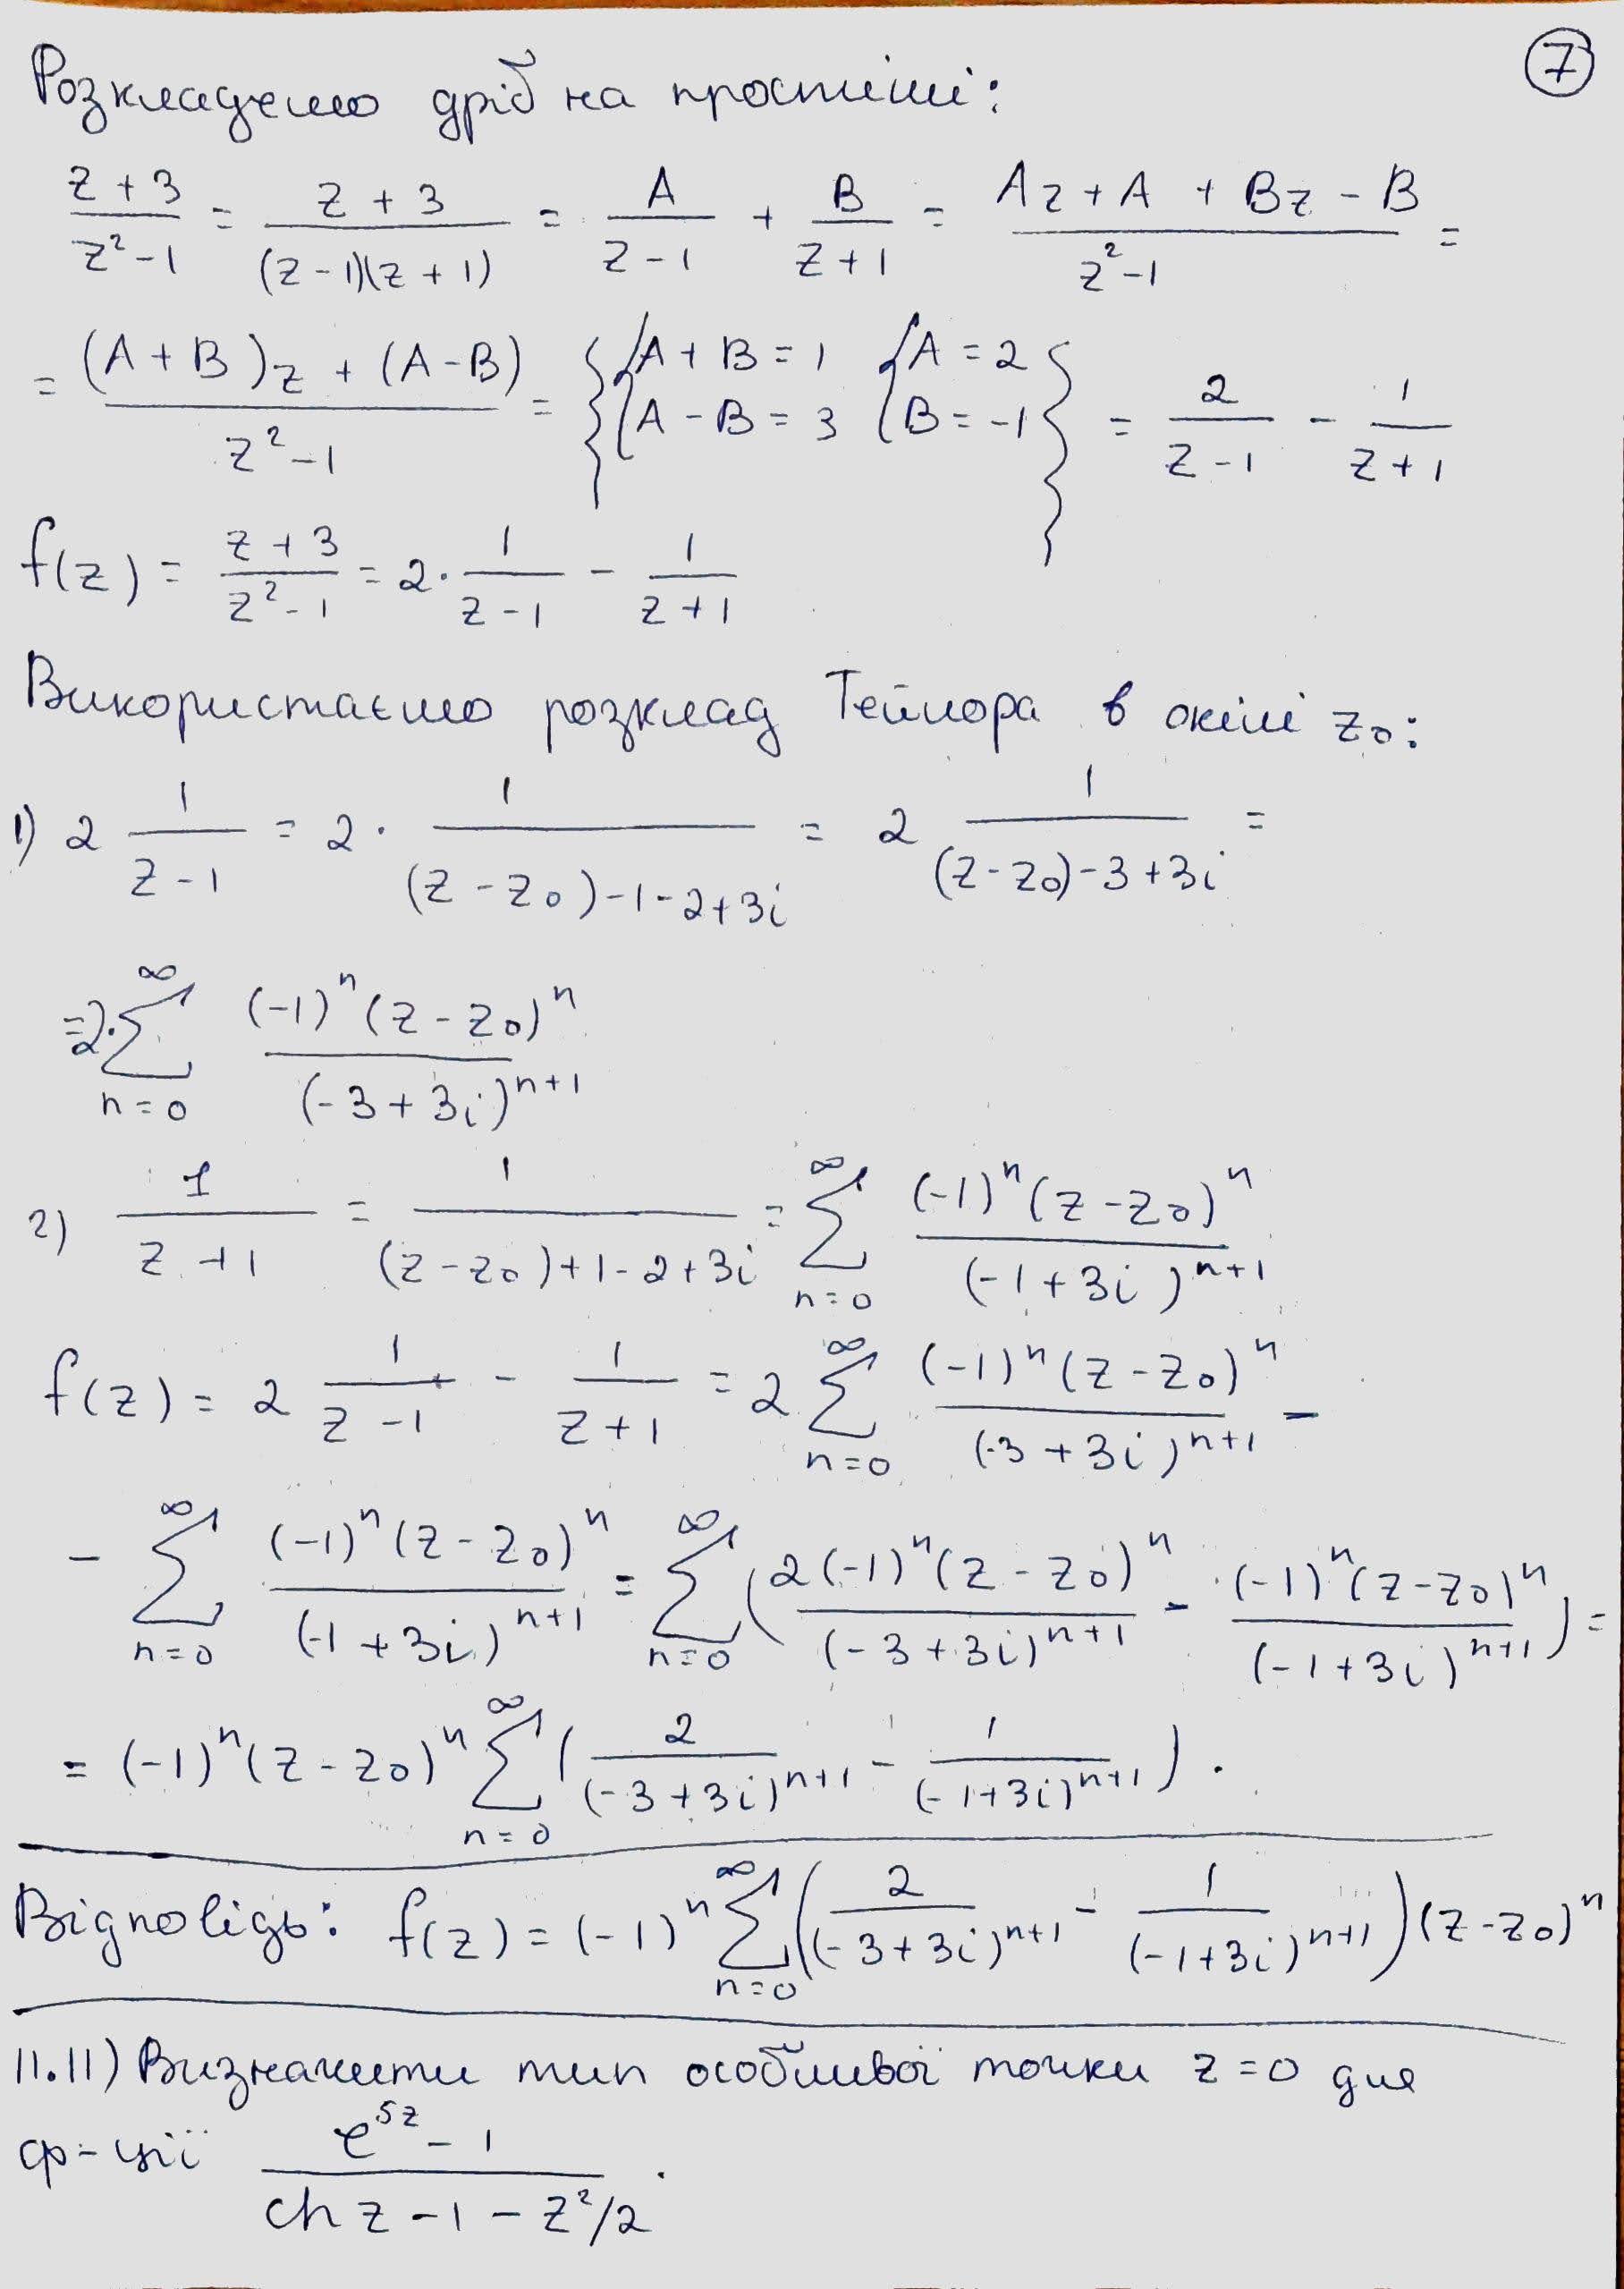 7
Розкладемо дріб на простіші:
z + 3 / z² - 1 = z + 3 / (z - 1)(z + 1) = A / z - 1 + B / z + 1 = Az + A + Bz - B / z² - 1 =
= (A + B)z + (A - B) / z² - 1 = { { A + B = 1 { A = 2 } A - B = 3 B = -1 } = 2 / z - 1 - 1 / z + 1
f(z) = z + 3 / z² - 1 = 2 · 1 / z - 1 - 1 / z + 1
Використаємо розклад Тейлора в околі z₀:
1) 2 1 / z - 1 = 2 · 1 / (z - z₀) - 1 - 2 + 3i = 2 1 / (z - z₀) - 3 + 3i =
= 2 · ∑ n=0 ∞ (-1)ⁿ (z - z₀)ⁿ / (-3 + 3i)ⁿ⁺¹
2) 1 / z + 1 = 1 / (z - z₀) + 1 - 2 + 3i = ∑ n=0 ∞ (-1)ⁿ (z - z₀)ⁿ / (-1 + 3i)ⁿ⁺¹
f(z) = 2 1 / z - 1 - 1 / z + 1 = 2 ∑ n=0 ∞ (-1)ⁿ (z - z₀)ⁿ / (-3 + 3i)ⁿ⁺¹ -
- ∑ n=0 ∞ (-1)ⁿ (z - z₀)ⁿ / (-1 + 3i)ⁿ⁺¹ = ∑ n=0 ∞ ( 2(-1)ⁿ (z - z₀)ⁿ / (-3 + 3i)ⁿ⁺¹ - (-1)ⁿ (z - z₀)ⁿ / (-1 + 3i)ⁿ⁺¹ ) =
= (-1)ⁿ (z - z₀)ⁿ ∑ n=0 ∞ ( 2 / (-3 + 3i)ⁿ⁺¹ - 1 / (-1 + 3i)ⁿ⁺¹ ) .
Відповідь: f(z) = (-1)ⁿ ∑ n=0 ∞ ( 2 / (-3 + 3i)ⁿ⁺¹ - 1 / (-1 + 3i)ⁿ⁺¹ ) (z - z₀)ⁿ
11.11) Визначити тип особливої точки z = 0 для
ф-цїї e⁵ᶻ - 1 / ch z - 1 - z²/2 .